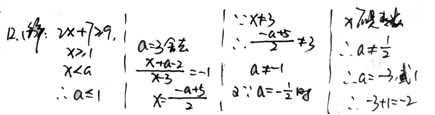 12. 解: 2x+7≥9,
x≥1
x<a
∴a≤1
a=3舍去
\frac{x+a-2}{x-3}=-1
x=\frac{-a+5}{2}
∵x≠3
∴\frac{-a+5}{2}≠3
a≠-1
又∵a=-\frac{1}{2}时
x
∴a≠\frac{1}{2}
∴a=-3,或1
∴-3+1=-2